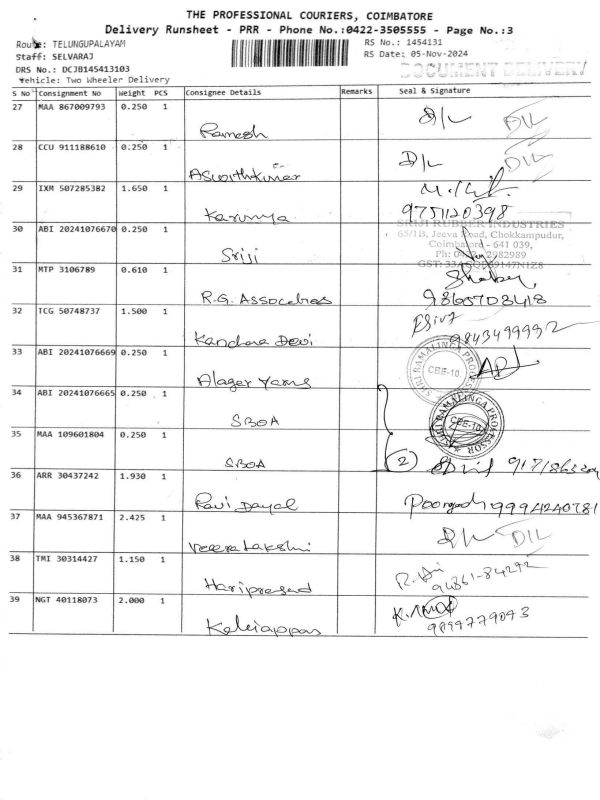 THE PROFESSIONAL COURIERS, COIMBATORE
Delivery Runsheet - PRR - Phone No.:0422-3505555 - Page No.:3
Route: TELUNGUPALAYAM RS No.: 1454131
Staff: SELVARAJ RS Date: 05-Nov-2024
DRS No.: DCJB145413103
Vehicle: Two Wheeler Delivery
DOCUMENT DELIVERY
S No Consignment No Weight PCS Consignee Details Remarks Seal & Signature
27 MAA 867009793 0.250 1
Ramesh D/L D/L
28 CCU 911188610 0.250 1
Aswithkumar D/L D/L
29 IXM 507285382 1.650 1
Karunya 9751120398
30 ABI 20241076670 0.250 1
SRIJI RUBBER INDUSTRIES
65/1B, Jeeva Road, Chokkampudur,
Coimbatore - 641 039,
Sriji
31 MTP 3106789 0.610 1
R.G. Associates 9865708418
32 TCG 50748737 1.500 1
Kandhara Devi 9843499992
33 ABI 20241076669 0.250 1
SHRI RAMALINGA PROCESSOR
CBE-10.
Alager Yarns
34 ABI 20241076665 0.250 1
SHRI RAMALINGA PROCESSOR
CBE-10.
SBOA
35 MAA 109601804 0.250 1
SBOA 2
36 ARR 30437242 1.930 1
Ravi Dayal 9994240781
37 MAA 945367871 2.425 1
Veeralakshmi D/L D/L
38 TMI 30314427 1.150 1
Hariprasad 94861-84272
39 NGT 40118073 2.000 1
Kaliappan 9894779043